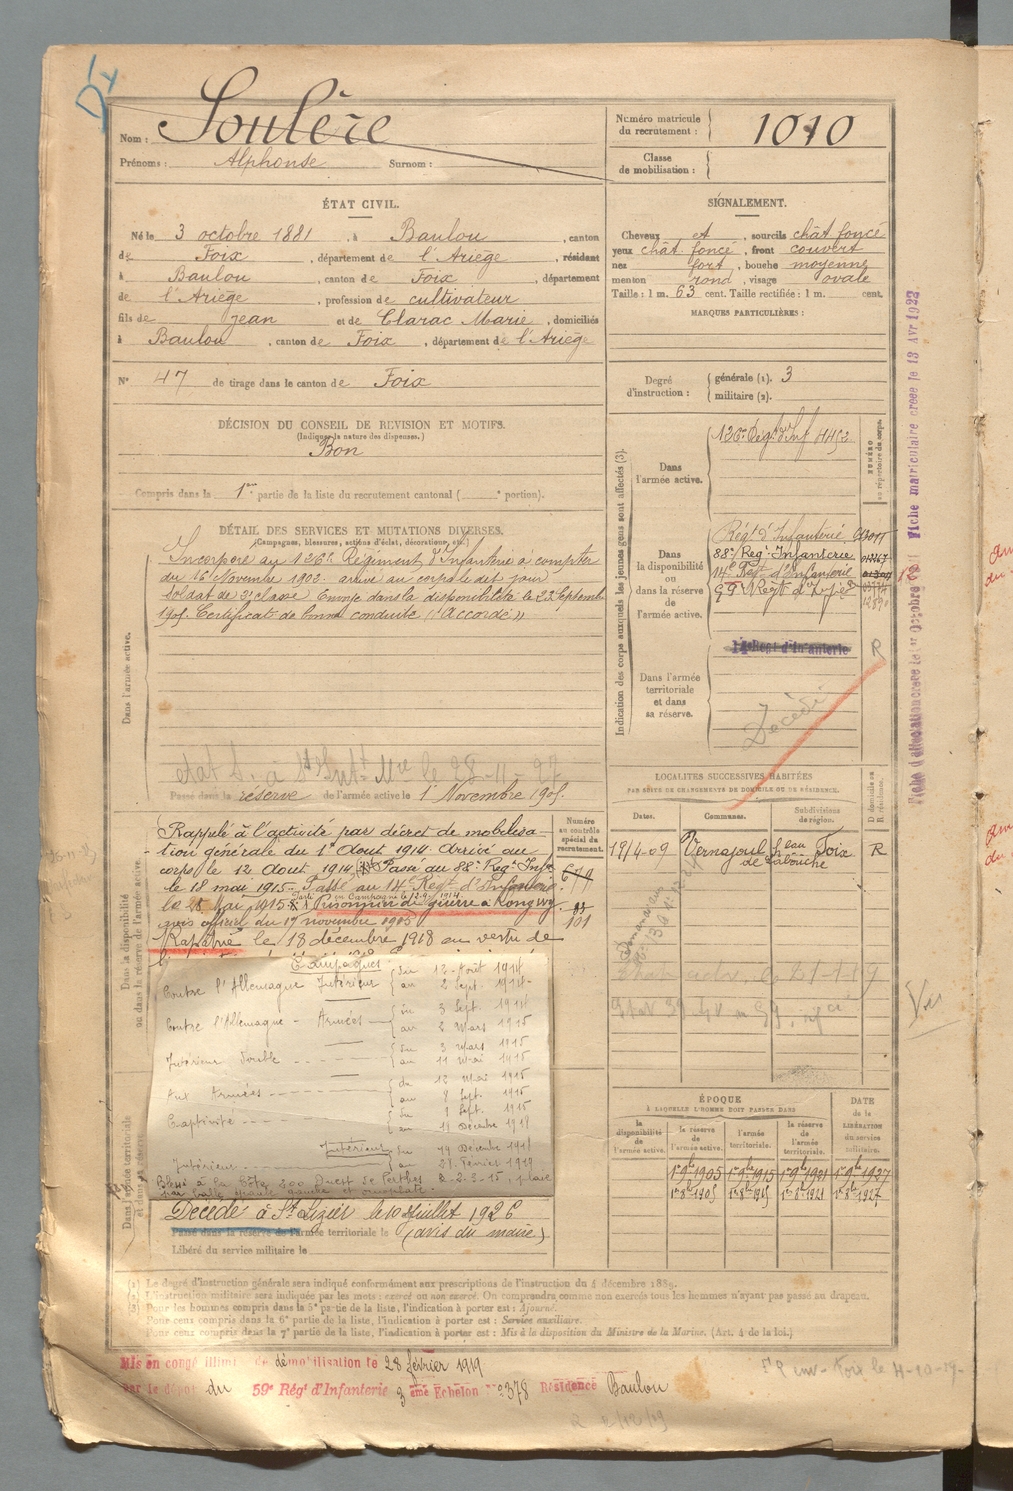 Nom : Soulère
Prénoms : Alphonse Surnom :
Numéro matricule du recrutement : 1010
Classe de mobilisation :
ÉTAT CIVIL.
Né le 3 octobre 1881, à Baulou, canton
de Foix, département de l'Ariège, résident
à Baulou, canton de Foix, département
de l'Ariège, profession de cultivateur
fils de Jean et de Clarac Marie, domiciliés
à Baulou, canton de Foix, département de l'Ariège
N° 47 de tirage dans le canton de Foix
SIGNALEMENT.
Cheveux et, sourcils chât foncé
yeux chât foncé, front couvert
nez fort, bouche moyenne
menton rond, visage ovale
Taille : 1 m. 63 cent. Taille rectifiée : 1 m. cent.
MARQUES PARTICULIÈRES :
Degré d'instruction : générale (1). 3
militaire (2).
DÉCISION DU CONSEIL DE REVISION ET MOTIFS.
(Indiquer la nature des dispenses.)
Bon
Compris dans la 1re partie de la liste du recrutement cantonal ( e portion).
DÉTAIL DES SERVICES ET MUTATIONS DIVERSES.
(Campagnes, blessures, actions d'éclat, décorations, etc.)
Dans l'armée active.
Incorporé au 126e Régiment d'Infanterie à compter
du 16 Novembre 1902. arrivé au corps le dit jour
soldat de 2e classe. Envoyé dans la disponibilité le 23 Septembre
1905. Certificat de bonne conduite "Accordé"
Passé dans la réserve de l'armée active le 1 Novembre 1905.
Indication des corps auxquels les jeunes gens sont affectés (3).
NUMÉRO au répertoire du corps.
Dans l'armée active.
126e Régt d'Inf
Dans la disponibilité ou dans la réserve de l'armée active.
Régt d'Infanterie
88e Régt Infanterie
14e Régt d'Infanterie
Dans l'armée territoriale et dans sa réserve.
14e Régt d'Infanterie
R
Décédé
Fiche matriculaire créée le 13 Avr 1922
LOCALITÉS SUCCESSIVES HABITÉES
PAR SUITE DE CHANGEMENTS DE DOMICILE OU DE RÉSIDENCE.
Dates. Communes. Subdivisions de région. D domicile ou R résidence.
19/4-09 Vernajoul h eau de Labouche Foix R
Numéro au contrôle spécial du recrutement.
679
101
Dans la disponibilité ou dans la réserve de l'armée active.
Rappelé à l'activité par décret de mobilisa-
tion générale du 1er Aout 1914. Arrivé au
corps le 12 Aout 1914. Passé au 88e Régt Infie
le 18 mai 1915. Passé au 14e Régt d'Infanterie
le 25 Mai 1915. Parti en Campagne le 12-9-1914
Prisonnier de guerre à Longwy
avis officiel du 17 novembre 1915
Rapatrié le 18 décembre 1918 en vertu de
Campagnes
Contre l'Allemagne Intérieur du 12 Août 1914 au 2 Sept. 1914
Contre l'Allemagne - Armées du 3 Sept. 1914 au 2 Mars 1915
Intérieur double du 3 Mars 1915 au 11 Mai 1915
Aux Armées du 12 Mai 1915 au 8 Sept. 1915
Captivité du 9 Sept. 1915 au 18 Décembre 1918
Intérieur du 19 Décembre 1918
Intérieur au 27 Février 1919
Blessé à la Côte 200 Ouest de Perthes le 2-3-15, plaie
par balle
Dans l'armée territoriale et dans sa réserve.
Décédé à St Lizier le 10 Juillet 1926
Passé dans la réserve de l'armée territoriale le (avis du maire)
Libéré du service militaire le
ÉPOQUE
À LAQUELLE L'HOMME DOIT PASSER DANS
DATE de la LIBÉRATION du service militaire.
la disponibilité de l'armée active. la réserve de l'armée active. l'armée territoriale. la réserve de l'armée territoriale.
1er 9bre 1905 1er 9bre 1915 1er 9bre 1921 1er 9bre 1927
(1) Le degré d'instruction générale sera indiqué conformément aux prescriptions de l'instruction du 4 décembre 1889.
(2) L'instruction militaire sera indiquée par les mots : exercé ou non exercé. On comprendra comme non exercés tous les hommes n'ayant pas passé au drapeau.
(3) Pour les hommes compris dans la 5e partie de la liste, l'indication à porter est : Ajourné.
Pour ceux compris dans la 6e partie de la liste, l'indication à porter est : Service auxiliaire.
Pour ceux compris dans la 7e partie de la liste, l'indication à porter est : Mis à la disposition du Ministre de la Marine. (Art. 4 de la loi.)
Mis en congé illimité de démobilisation le 28 février 1919
par le dépôt du 59e Régt d'Infanterie 3ème Echelon N° 378 Résidence Baulou